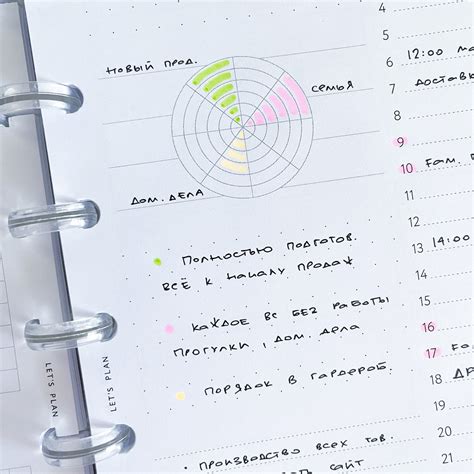 НОВЫЙ ПРОД.
СЕМЬЯ
ДОМ. ДЕЛА
ПОЛНОСТЬЮ ПОДГОТОВ.
ВСЁ К НАЧАЛУ ПРОДАЖ
КАЖДОЕ ВС БЕЗ РАБОТЫ
ПРОГУЛКИ, ДОМ. ДЕЛА
ПОРЯДОК В ГАРДЕРОБ.
• ПРОИЗВОДСТВО ВСЕХ ТОВ.
САЙТ
LET'S PLAN
LET'S PLAN
4
5
6 12:00
7 ДОСТАВК
8
9
10 FAM.
11
12
13 14:00
14
15
16
17
18
19
20
21